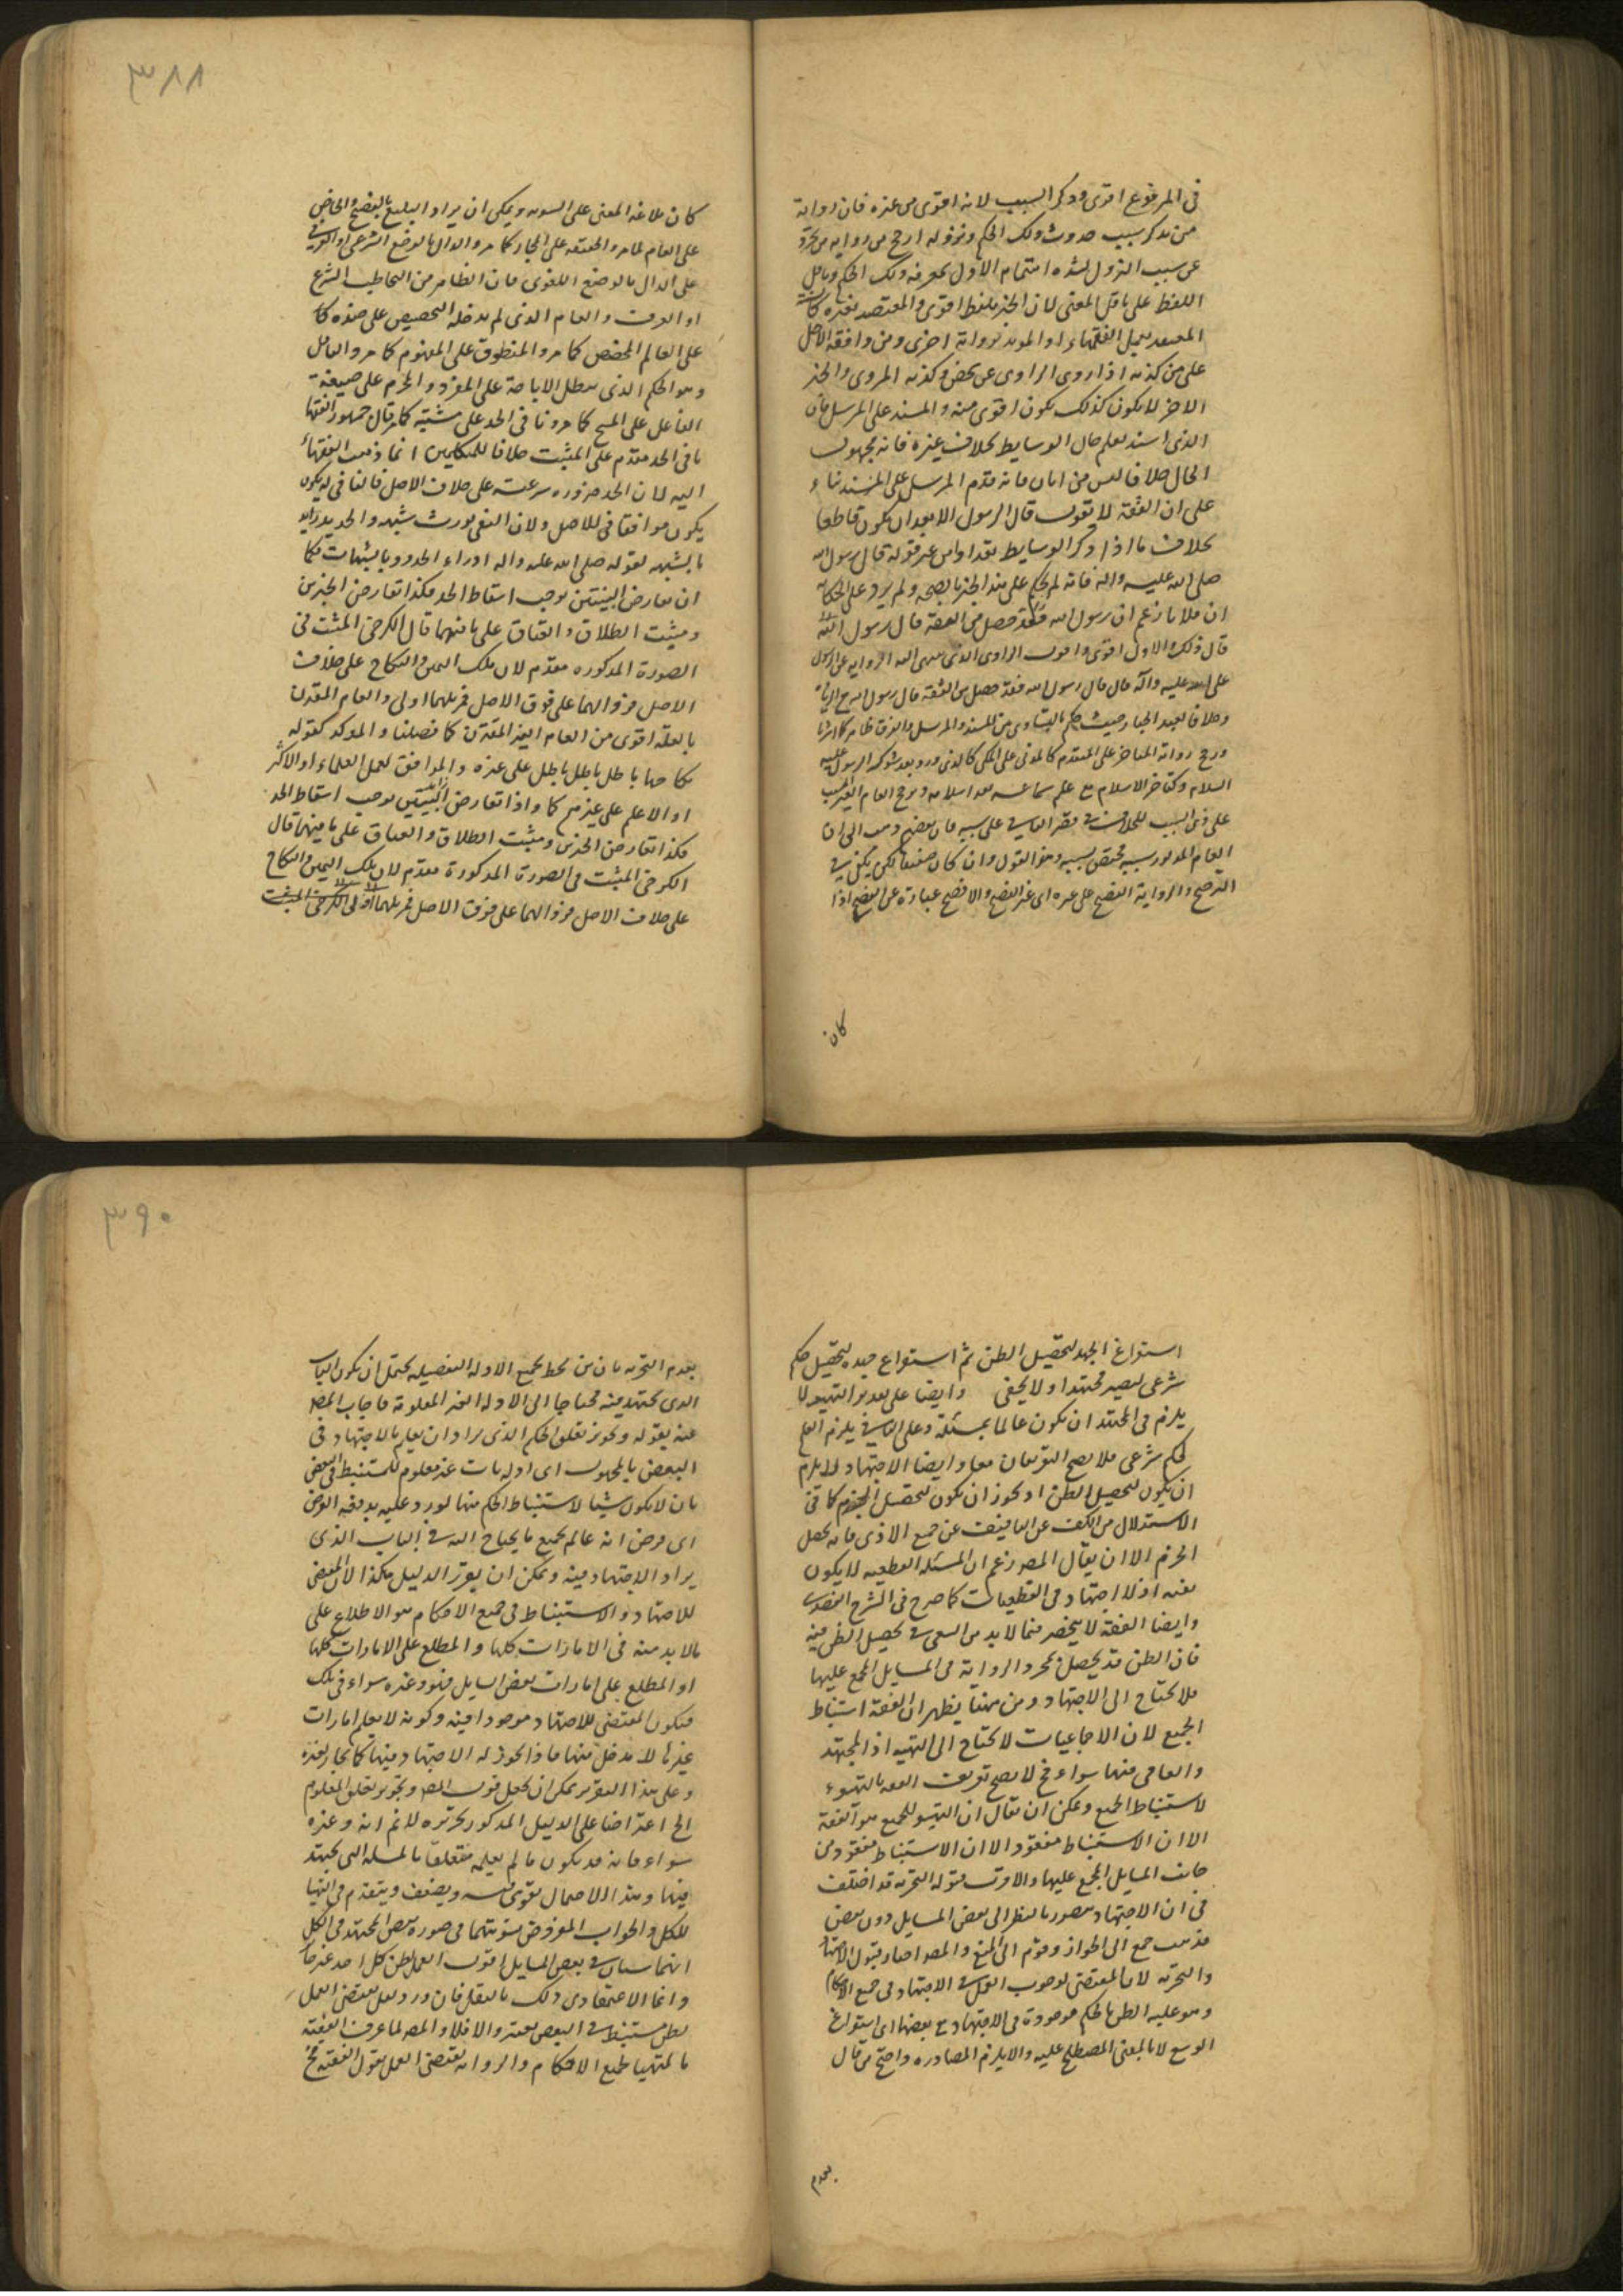 ٣٨٨
فى المرفوع اقوى وذكر السبب لانه اقوى من غيره فان رواية
من يذكر سبب حدوث ذلك الحكم ونزوله ارجح من رواية من تجرد
عن سبب النزول لشدة اهتمام الاول بمعرفة ذلك الحكم وناقل
اللفظ على ناقل المعنى لان الخبر بلفظ اقوى والمعتضد بغيره
المعتضد بعمل الفقهاء او المؤيد برواية اخرى ومن وافقه الاصل
على من كذبه اذا روى الراوى عن شخص وكذبه المروى والخبر
الاخر لا يكون كذلك يكون اقوى منه والمسند على المرسل فان
الذى اسند يعلم حال الوسايط بخلاف غيره فانه مجهول
الحال خلافا لعيسى بن ابان فانه قدم المرسل على المسند بناء
على ان الثقة لا يقول قال الرسول الا بعد ان يكون قاطعا
بخلاف ما اذا ذكر الوسايط
صلى الله عليه واله فانه لم يحكم على هذا الخبر بالصحة ولم يزد على الحكاية
ان فلانا زعم ان رسول الله فقد حصل من الثقة قال رسول الله
قال ذلك والاول اقوى واقول الراوى الذى
عليه واله قال قال رسول الله فقد حصل من الثقة قال رسول الله
وخلافا لعبد الجبار حيث حكم بالتساوى بين المسند والمرسل والفرق ظاهر كما
ورجح رواية المتاخر على المتقدم كالمدنى على المكى كالذى ورد بعد شوكة الرسول عليه
السلام وكمتاخر الاسلام مع علم سماعه بعد اسلامه ويرجح العام الغير
على ذى السبب للخلاف فى قصر العام على سببه فان بعضهم ذهب الى ان
العام المذكور بسببه مختص بسببه وهذا القول وان كان ضعيفا لكن يكفى فى
الترجيح والرواية الفصيح على غيره اى غير الفصيح والافصح عبارة عن الفصيح اذا
كان
كان بلاغة المعنى على السوية ويمكن ان يراد البليغ بالفصيح والخاص
على العام لما مر والحقيقة على المجاز كما مر والدال بالوضع الشرعى او العرفى
على الدال بالوضع اللغوى فان الظاهر من التخاطب الشرع
او العرف والعام الذى لم يدخله التخصيص على ضده كما
على العالم المخصص كما مر والمنطوق على المفهوم كما مر والناقل
وهو الحكم الذى يبطل الاباحة على المقرر والمحرم على
على المبيح كما مر ونافى الحد على مثبته كما مر قال جمهور الفقها
نافى الحد مقدم على المثبت خلافا للمتكلمين انما ذهب الفقهاء
اليه لان الحد ضرورة شرعت على خلاف الاصل فالنافى له يكون
يكون موافقا فى للاصل ولان النفى يورث شبهة والحد يدراء
بالشبهة لقوله صلى الله عليه واله ادراء الحدود بالشبهات فكما
ان تعارض البينتين يوجب اسقاط الحد فكذا تعارض الخبرين
ومثبت الطلاق والعتاق على نافيهما قال الكرخى المثبت فى
الصورة المذكورة مقدم لان ملك اليمين والنكاح على خلاف
الاصل فزوالهما على وفق الاصل اولى والعام المقترن
بالعلة اقوى من العام الغير المقترن كما فصلنا والموكد كقوله
نكاحها باطل باطل باطل على غيره والموافق لعمل العلماء او الاكثر
او الاعلم على غيرهم كما واذا تعارض البينتين يوجب اسقاط الحد
فكذا تعارض الخبرين ومثبت الطلاق والعتاق على نافيهما قال
الكرخى المثبت فى الصورة المذكورة مقدم لان ملك اليمين والنكاح
على خلاف الاصل فزوالهما على وفق الاصل اولى الكرخى المثبت
٣٩٠
استفراغ الجهد لتحصيل الظن ثم استفراغ جهده لتحصيل حكم
شرعى ليصير مجتهدا ولا يخفى وايضا على تقدير التهيؤ لا
يلزم فى المجتهد ان يكون عالما بمسئلة وعلى الثانى يلزم العلم
لحكم شرعى فلا يصح التوقفان معا وايضا الاجتهاد لا يلزم
ان يكون لتحصيل الظن اذ يجوز ان يكون لتحصيل الجزم كما فى
الاستدلال من الكف عن التأفيف عن جميع الاذى فانه يحصل
الجزم الا ان يقال المصر زعم ان المسئلة القطعية لا يكون
فقه اذ لا اجتهاد فى القطعيات كما صرح فى الشرح
وايضا الفقه لا ينحصر فيما لا بد من السعى فى تحصيل الظن فيه
فان الظن قد يحصل بمجرد الرواية فى المسايل المجمع عليها
فلا يحتاج الى الاجتهاد ومن ههنا يظهر ان الفقه استنباط
الجميع لان الاجماعيات لا يحتاج الى التهيؤ اذ المجتهد
والعامى فيها سواء فح لا يصح تعريف الفقه بالتهيوء
لاستنباط الجميع ويمكن ان يقال ان التهيؤ للجميع هو الفقه
الا ان الاستنباط مفقود الا ان الاستنباط مفقود من
جانب المسايل المجمع عليها والاقرب قبوله التجزيه قد اختلف
فى ان الاجتهاد يتصور بالنظر الى بعض المسايل دون بعض
فذهب جمع الى الجواز وقوم الى المنع والمصر اختار قبول الاجتهاد
والتجزيه لان المقتضى لوجوب العمل فى الاجتهاد فى جميع الاحكام
وهو غلبة الظن بالحكم موجودة فى الاجتهاد مع بعضها اى استفراغ
الوسع لا بالمعنى المصطلح عليه والا يلزم المصادره واحتج من قال
بعدم
بعدم التجزيه بان من لم يحط بجميع الادلة التفصيلية يحتمل ان يكون الباب
الذى يجتهد فيه محتاجا الى الادلة الغير المعلومة فاجاب المصر
عنه بقوله وتجويز تعلق الحكم الذى يراد ان يعلم بالاجتهاد فى
البعض بالمجهول اى ادلة باب غير معلوم للمستنبط فى البعض
بان لا يكون شيئا لاستنباط الحكم منها ليورد عليه يدفعه الفرض
اى فرض انه عالم بجميع ما يحتاج اليه فى الباب الذى
يراد الاجتهاد فيه ويمكن ان يقرر الدليل هكذا لان المقتضى
للاجتهاد والاستنباط فى جميع الاحكام هو الاطلاع على
ما لا بد منه فى الامارات كلها والمطلع على الامارات كلها
او المطلع على امارات بعض المسايل فهو وغيره سواء فى تلك
فيكون المقتضى للاجتهاد موجودا فيه وكونه لا يعلم امارات
غيرها لا مدخل فيها فاذا يجوز له الاجتهاد فيها كما جاز لغيره
وعلى هذا التقرير يمكن ان يجعل قول المصر وتجويز تعلق المعلوم
الخ اعتراضا على الدليل المذكور تحريره لا نم انه وغيره
سواء فانه قد يكون ما لم يعلمه متعلقا بالمسئلة التى يجتهد
فيها وهذا الاحتمال يقوى فيه ويضعف وينعدم فى
للكل والجواب المفروض تسويتهما فى صورة بعض المجتهد فى الكل
انهما سيان فى بعض المسايل اقول العمل بظن كل احد غير جائز
وانما الاعتقاد فى ذلك بالنقل فان ورد دليل يقتضى العمل
بظن مستنبط فى البعض يعتبر والا فلا والمصر لما عرف الفقيه
بالمتهيا لجميع الاحكام والرواية يقتضى العمل بقول الفقيه فح